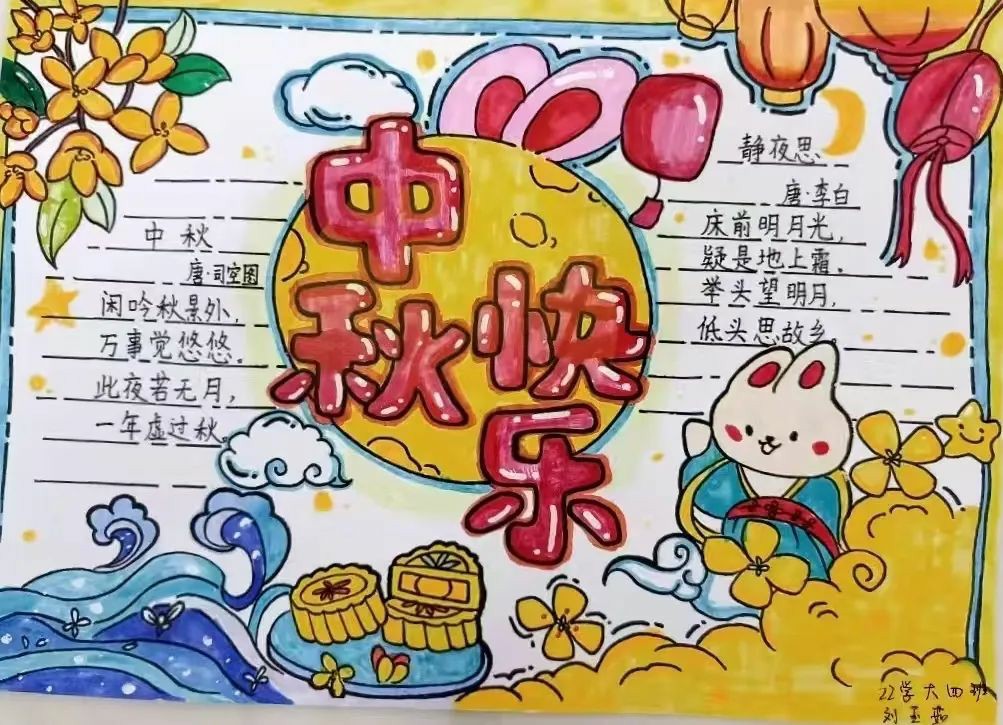 中秋快乐
中秋
唐·司空图
闲吟秋景外，
万事觉悠悠。
此夜若无月，
一年虚过秋。
静夜思
唐·李白
床前明月光，
疑是地上霜。
举头望明月，
低头思故乡。
22学大四班
刘玉茹